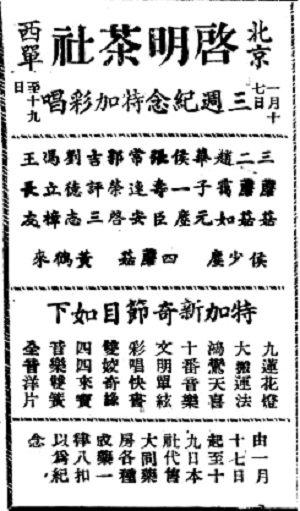 北京
啓明茶社
西單
一月十七日至十九日
三週紀念特加彩唱
三蘑菇
二蘑菇
趙靄如
華子元
侯一塵
張壽臣
常連安
郭榮啓
吉評三
劉德志
馮立樟
王長友
侯少塵 四蘑菇 黃鶴來
特加新奇節目如下
九蓮花燈
大搬運法
鴻驚天喜
十番音樂
文明單絃
彩唱快書
雙姣奇緣
四四來寳
音樂雙簧
全音洋片
由一月
十七日
起至十
九日本
社代售
大同藥
房各種
成藥一
律八扣
以爲紀
念